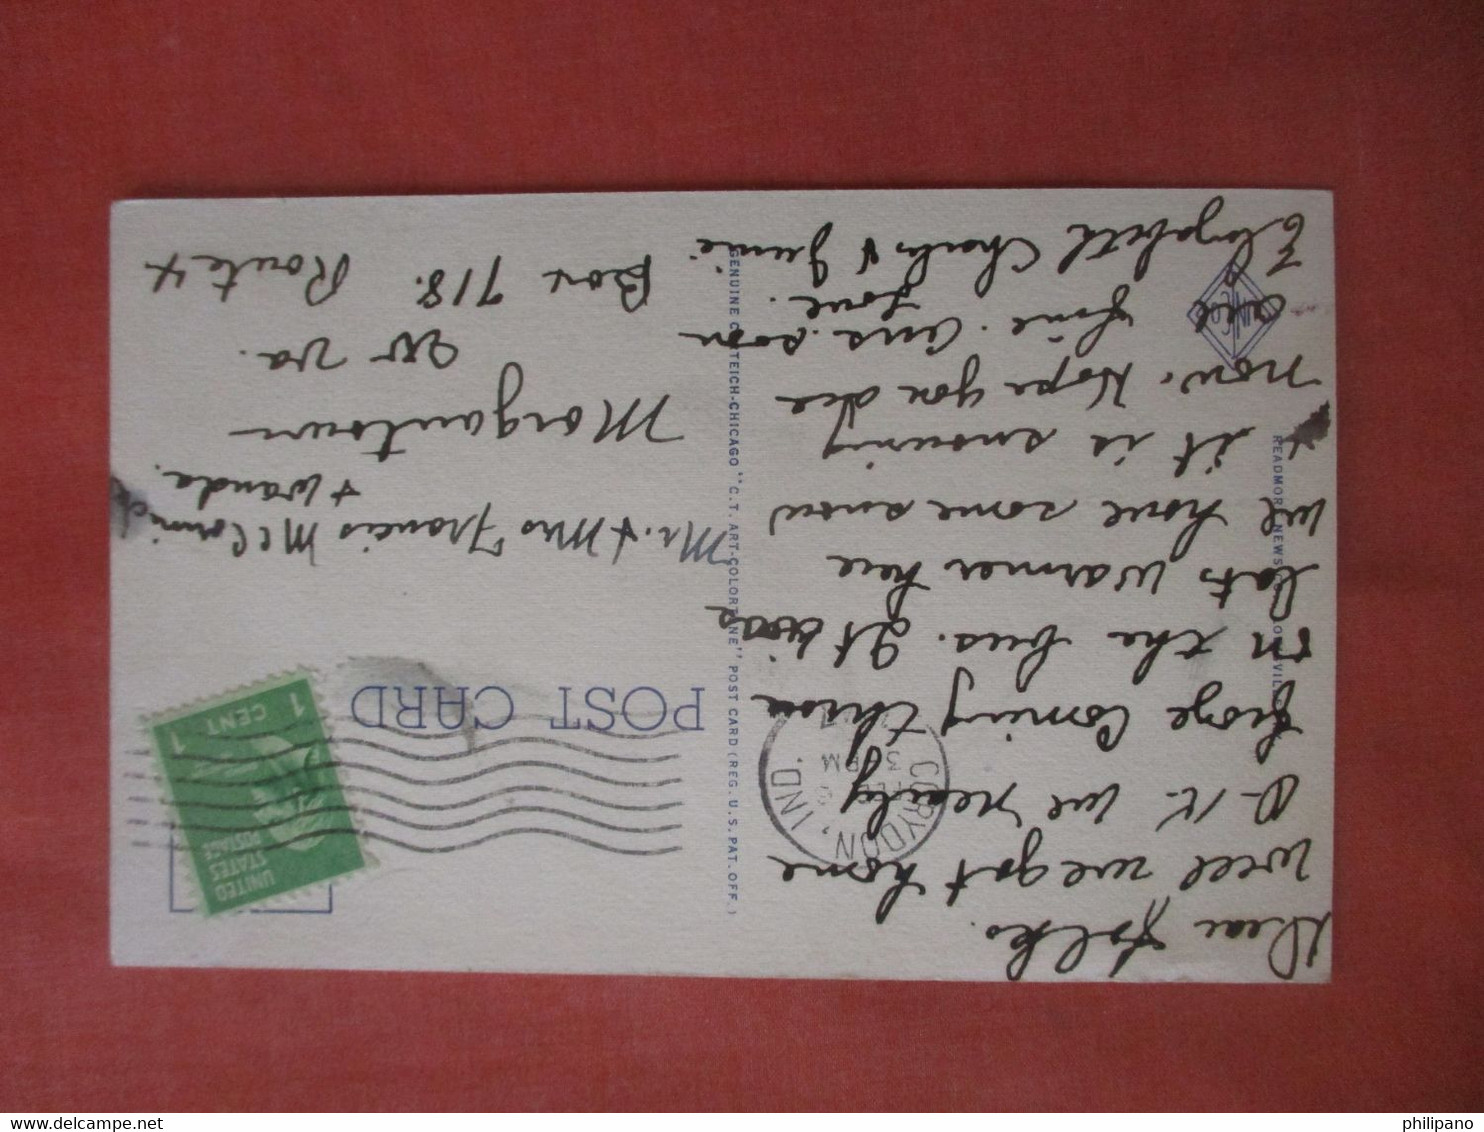 Dear folks.
Well we got home
O.K. we nearly
froze Coming throu
on the bus. It was
lots warmer here
we have some snow
+ it is snowing
now. Hope you are
all fine. Ans. soon
Love.
Elizabeth Charles & Junie
GENUINE CURTEICH-CHICAGO "C.T. ART-COLORTONE" POST CARD (REG. U.S. PAT. OFF.)
CORYDON, IND.
3 PM
POST CARD
UNITED
STATES
POSTAGE
1 CENT 1
Mr. + Mrs Francis McCormick
+ Wanda.
Morgantown
W Va.
Box 718. Route 4
philipano